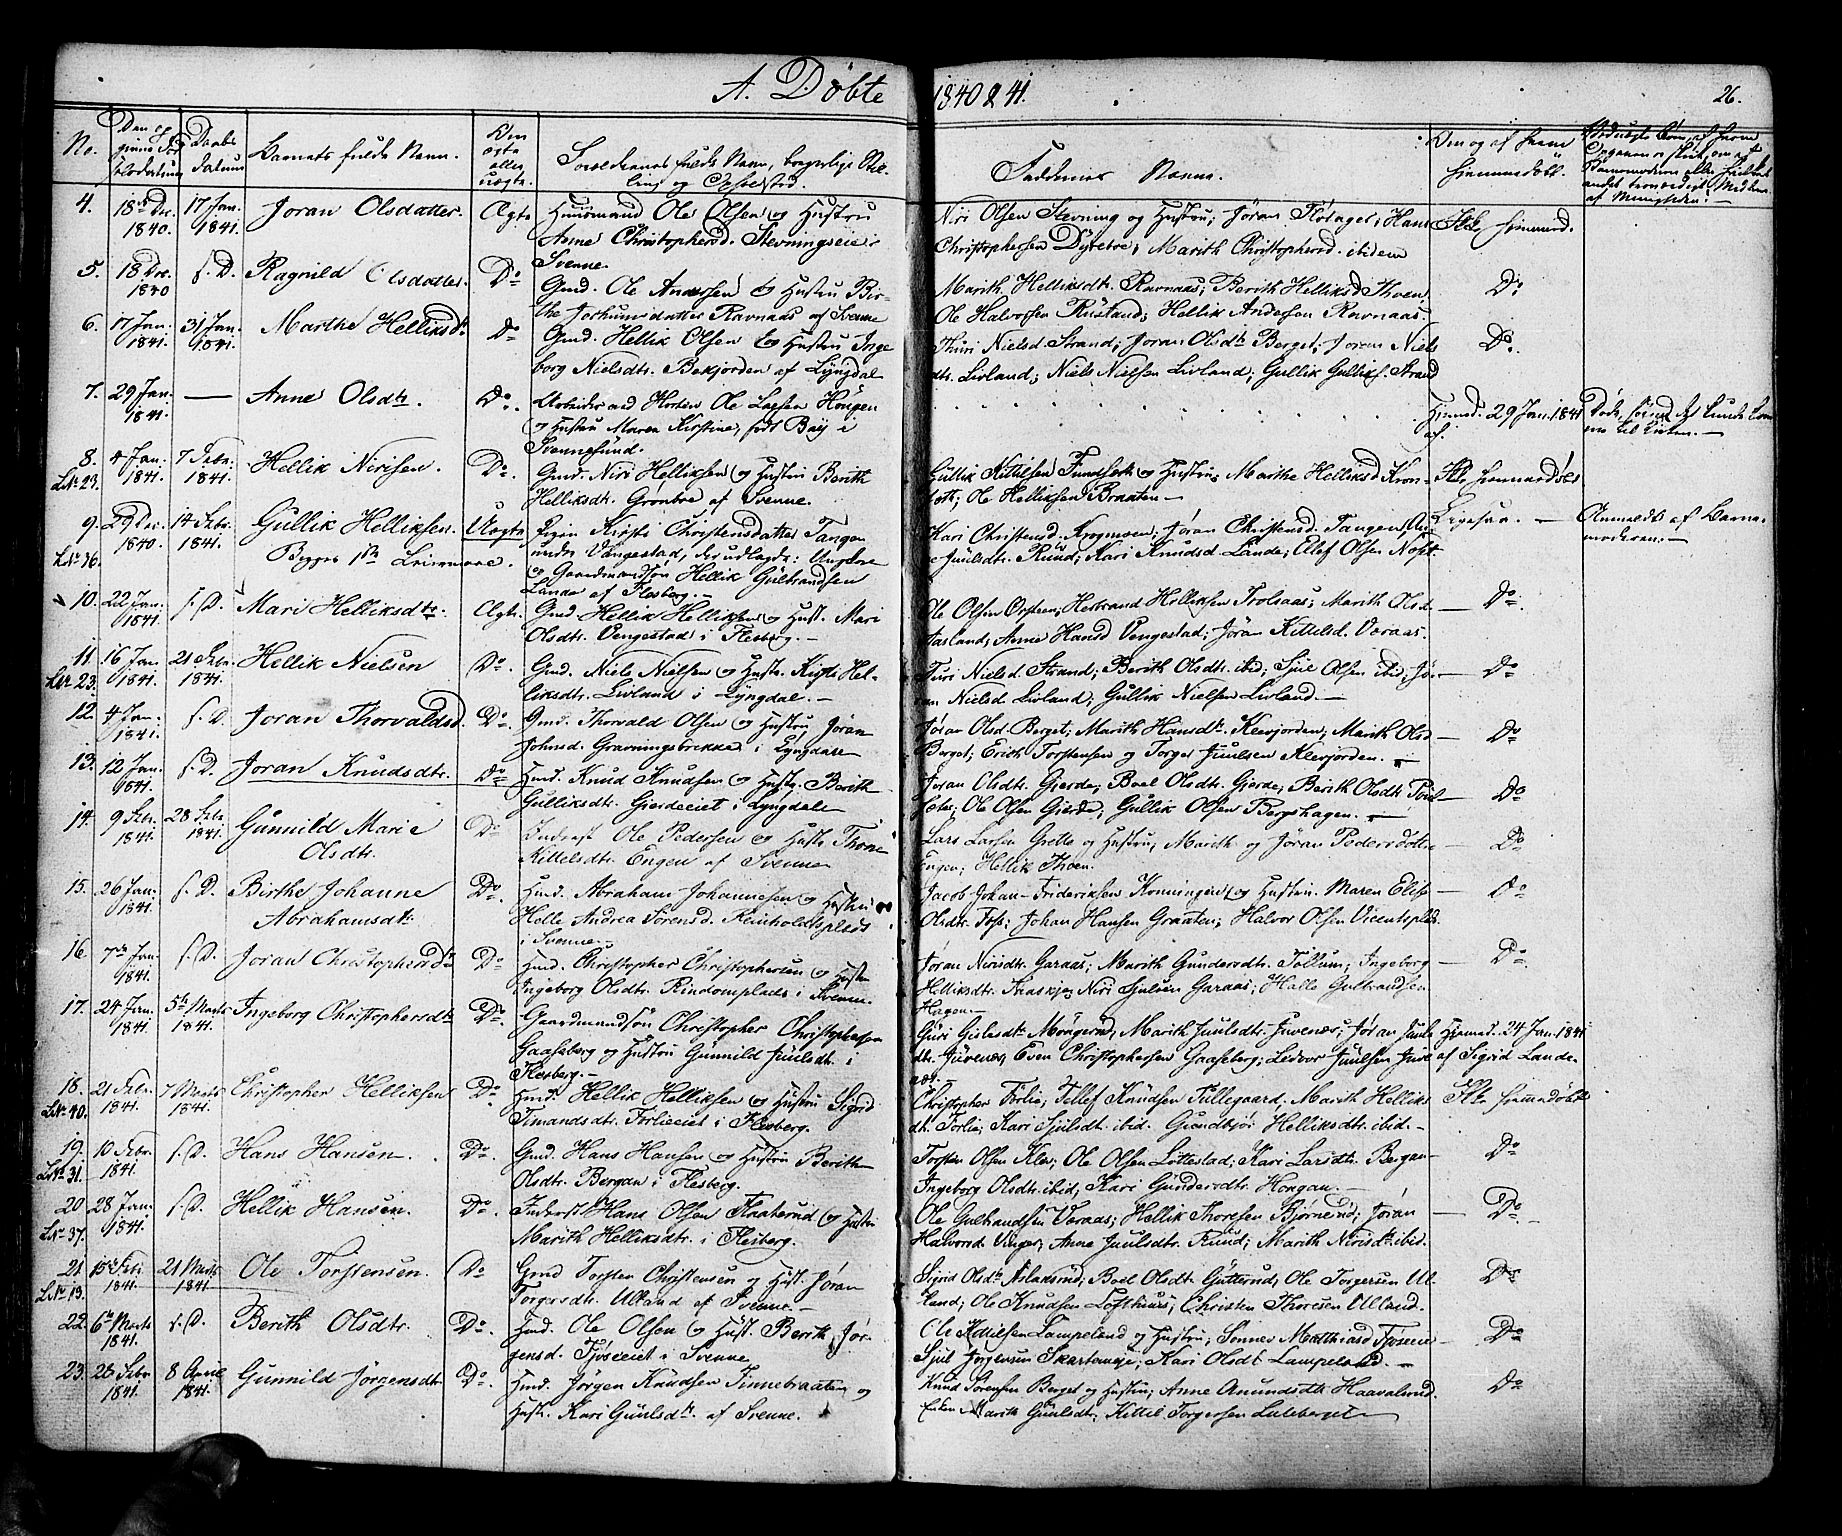 A. Døbte
1840 & 41.
26.
No.
Daabs
Datum
Barnets fulde Navn.
Den
ægte
eller
uægte.
Forældrenes fulde Navn, borgerlige Stil-
ling og Opholdsted.
Faddernes Navne.
4.
18de Dec.
1840.
17 Jan.
1841.
Joran Olsdatter.
Ægte
Huusmand Ole Olsen og Hustru
Anne Christophersd. Stevningseie i
Svenne.
Niri Olsen Stevning og Hustru; Jöran Flötaget; Hans
Christophersen Dyrebre; Marith Christophersd. ibidem
5.
18 Dec.
1840
s. D.
Ragnild Olsdatter.
Do
Gmd. Ole Andersen og Hustru Bir-
the Ravnaas af Svenne
Marith Helliksdt. Ravnaas; Berith Helliksd Thoen
Ole Halvorsen Rustand; Hellik Andersen Ravnaas.
Do.
6.
17 Jan.
1841.
31 Jan.
1841.
Marthe Helliksdt.
Do
Gmd. Hellik Olsen og Hustru Inge
borg Nielsdtr. Bekjorden af Lyngdal
Thuri Nielsd Strand; Joran Olsdt. Berget; Joran Niels
dtr. Livland; Niels Nielsen Livland; Gullik Gulliks. Strand
Do.
7.
29 Jan.
1841.
Anne Olsdtr.
Do.
Arbeider ved Ole Larsen Höugen
og Hustru Maren Kirstine, født Baij i
Svennesund.
Hjemd. 29 Jan. 1841
af.
8.
Lbr 23.
4 Jan.
1841.
7 Febr.
1841.
Hellik Nirisen.
Do.
Gmd. Niri Helliksen og Hustru Berith
Helliksdt. Grönbre af Svenne.
Gullik Kittilsen Fundsæth og Hustru; Marthe Helliksd
Ole Helliksen Braaten
9.
Lbr 16.
29 Dec.
1840.
14 Febr.
1841.
Gullik Helliksen.
Uægte
Pigen Kirsti Christensdatter Tangen
under Vangestad, udlagde: Ungkarl
og Gaardmandsøn Hellik Gulbrandsen
Lande af Flesberg.
Kari Christensd. Krogmoen; Jöran Christensd. Tangen
Juulsdt. Ruud; Kari Knudsd Lande; Elef Olsen
Ligesaa.
Anmeldt af Barne
moderen.
10.
22 Jan.
1841.
s. D.
Mari Helliksdtr.
Ægte.
Gmd Hellik Helliksen og Hust. Mari
Olsdtr. Vengestad i Flesberg.
Ole Olsen; Herbrand Helliksen Trolsaas; Marith Olsd.
Aasland; Anne Hansd Vengestad; Jöran Kittelsd. Væraas.
Do.
11.
Lbr 23.
16 Jan
1841.
21 Febr.
1841.
Hellik Nielsen
Do.
Gmd. Niels Nielsen og Hustr. Kirsti Hel-
liksdtr. Livland i Lyngdal.
Turi Nielsd Strand; Berith Olsdtr. ibid; Sjul Olsen ibid; Jö-
ran Nielsd Livland; Gullik Nielsen Livland.
Do
12.
4 Jan.
1841.
s. D.
Joran Thorvaldsd.
Do.
Gmd. Thorvald Olsen og Hustru Jöran
Johnsd. Gravningsbrekke i Lyngdal.
Jöran Olsd. Berget; Marith Hansdt. Klevjorden; Marith Olsd
Berget; Erich Torstensen og Torger Juulsen Klevjorden.
Do
13.
12 Jan.
1841.
s. D.
Joran Knudsdtr.
Do
Hmd. Knud Knudsen og Hustr. Berith
Gulliksdtr. Gjerdeeiet i Lyngdal.
Jöran Olsdtr. Gjerde; Boel Olsdt. Gjerde; Berith Olsdt.
Ole Olsen Gjerde; Gullik Olsen Bergshagen.
Do
14.
9 Febr.
1841.
28 Febr.
1841.
Gunnild Marie
Olsdtr.
Do
Inderst Ole Pedersen og Hustr. Thone
Kittelsdtr. Engen af Svenne.
Lars Larsen Grette og Hustru, Marith og Jöran Pedersdøtre
Engen; Hellik Thoen.
Do
15.
26 Jan.
1841.
s. D.
Birthe Johanne
Abrahamsdtr.
Do.
Hmd. Abraham Johannesen og Hustru
Helle Andrea Sörensd. Reinholdtsplads
i Svenne.
Jacob Johan Frideriksen Konningen og Hustru. Maren Elise
Olsdtr. Foss; Johan Hansen Graaten; Halvor Olsen
Do
16.
7de Jan.
1841.
s. D.
Joran Christophersdtr
Do
Hmd. Christopher Christophersen og Hustr
Ingeborg Olsdtr. i Svenne.
Jøran Nirisdtr. Garaas; Marith Gundersdtr. Tollum; Ingeborg
Helliksdtr. Aaskja; Niri Sjulsen Garaas; Halle Gulbrandsen
Hagen
Do
17.
24 Jan.
1841.
5te Marts
1841.
Ingeborg Christophersdtr
Do.
Gaardmandsøn Christopher Christophersen
Gaaseberg og Hustru Gunnild Juulsdt. i
Flesberg.
Guri Gislesdt. Möngerud, Marith Juulsdt. Juvenæs; Jöran Juuls
dt. Juvenæs; Even Christophersen Gaaseberg; Ledvor Juulsen Juve
næs.
Hjemd. 24 Jan. 1841
af Sigrid Lande.
18.
Lbr 40.
21 Febr.
1841.
7 Marts
1841.
Christopher Helliksen
Do.
Hmd. Hellik Helliksen og Hustru Sigrid
Simandsdtr. Førlieeiet i Flesberg.
Christopher Førlie; Tellef Knudsen Tullegaard. Marith Helliks
dt. Førlie; Kari Sjulsdt. ibid. Gundbjör Helliksdtr. ibid.
19.
Lbr 31.
10 Febr.
1841.
s. D.
Hans Hansen.
Do.
Gmd. Hans Hansen og Hustru Berith
Olsdtr. Bergan i Flesberg.
Torsten Olsen Klev; Ole Olsen Lottestad; Kari Larsdtr. Bergan
Ingeborg Olsdtr. ibid; Kari Gundersdtr. Hougan.
Do
20
Lbr 37.
28 Jan.
1841.
s. D.
Hellik Hansen.
Do.
Inderst Hans Olsen Flaaterud og Hustr
Marith Helliksdtr. i Flesberg.
Ole Gulbrandsen Væraas; Hellik Thoresen Bjørnerud; Jöran
Halvorsd. Vinger; Anne Juulsdtr. Ruud; Marith Nirisdtr. ibid.
Do.
21.
Lbr 13.
15 Febr
1841.
21 Marts
1841.
Ole Torstensen.
Do
Gmd Torsten Christensen og Hust. Jöran
Torgersdtr. Ulland af Svenne.
Sigrid Olsdtr. Aslaksrud; Boel Olsdt. Gutterud; Ole Torgersen Ul
land; Ole Knudsen Lofthuus; Christen Thoresen Ulland.
Do
22.
6te Marts
1841.
s. D.
Berith Olsdtr.
Do.
Hmd. Ole Olsen og Hust. Berith Jör-
gensd. Fjöseeiet i Svenne
Ole Lampeland og Hustru;
Sjul Jörgensen; Kari Olsdt Lampeland.
Do
23.
26 Febr
1841.
8 April
1841.
Gunnild Jørgensdtr.
Do.
Hmd. Jørgen Knudsen Finnebraaten og
Hustr. Kari Guulsdtr. af Svenne.
Knud Sørensen Berget og Hustru; Anne Amundsdt. Haavalsrud.
Enken Marith Guulsdt; Kittil Torgersen
Do